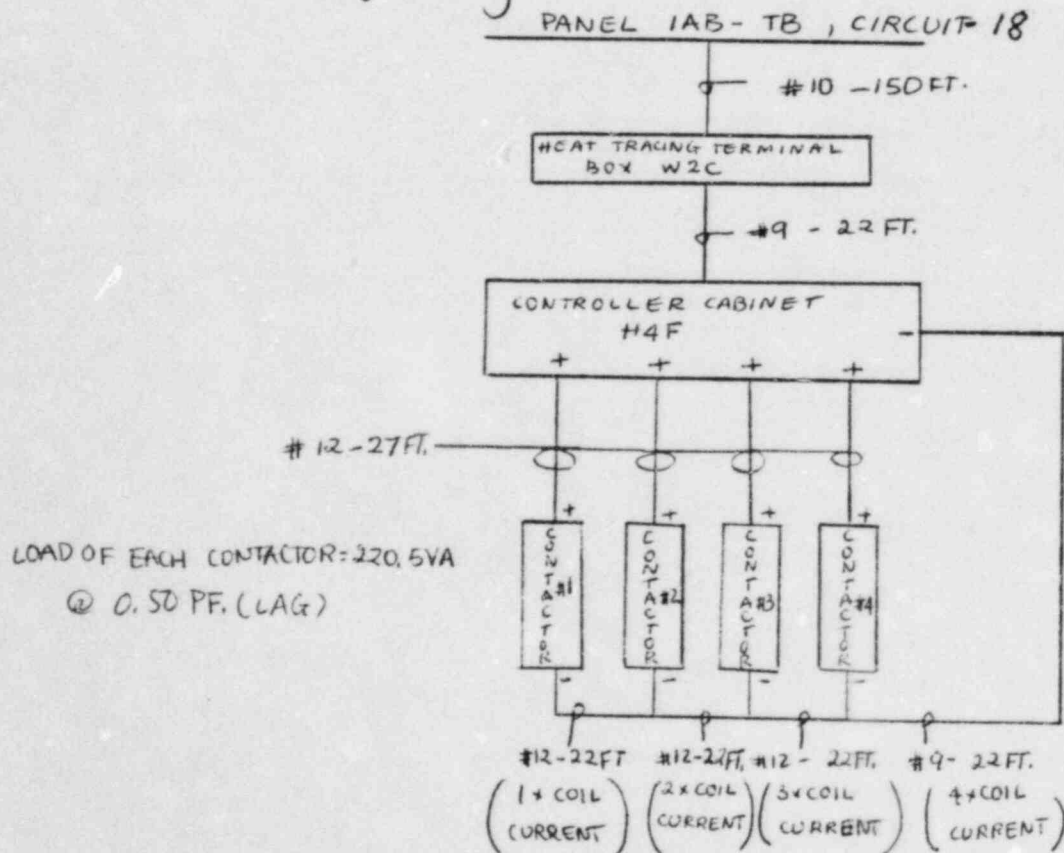 PANEL 1AB-TB, CIRCUIT 18
#10 - 150 FT.
HEAT TRACING TERMINAL
BOX W2C
#9 - 22 FT.
CONTROLLER CABINET
H4F
-
+ + + +
#12-27 FT.
+ + + +
LOAD OF EACH CONTACTOR=220.5VA
@ 0.50 PF. (LAG)
CONTACTOR #1
CONTACTOR #2
CONTACTOR #3
CONTACTOR #4
- - - -
#12-22FT #12-22FT. #12- 22FT. #9- 22FT.
(1 x COIL CURRENT) (2 x COIL CURRENT) (3 x COIL CURRENT) (4 x COIL CURRENT)